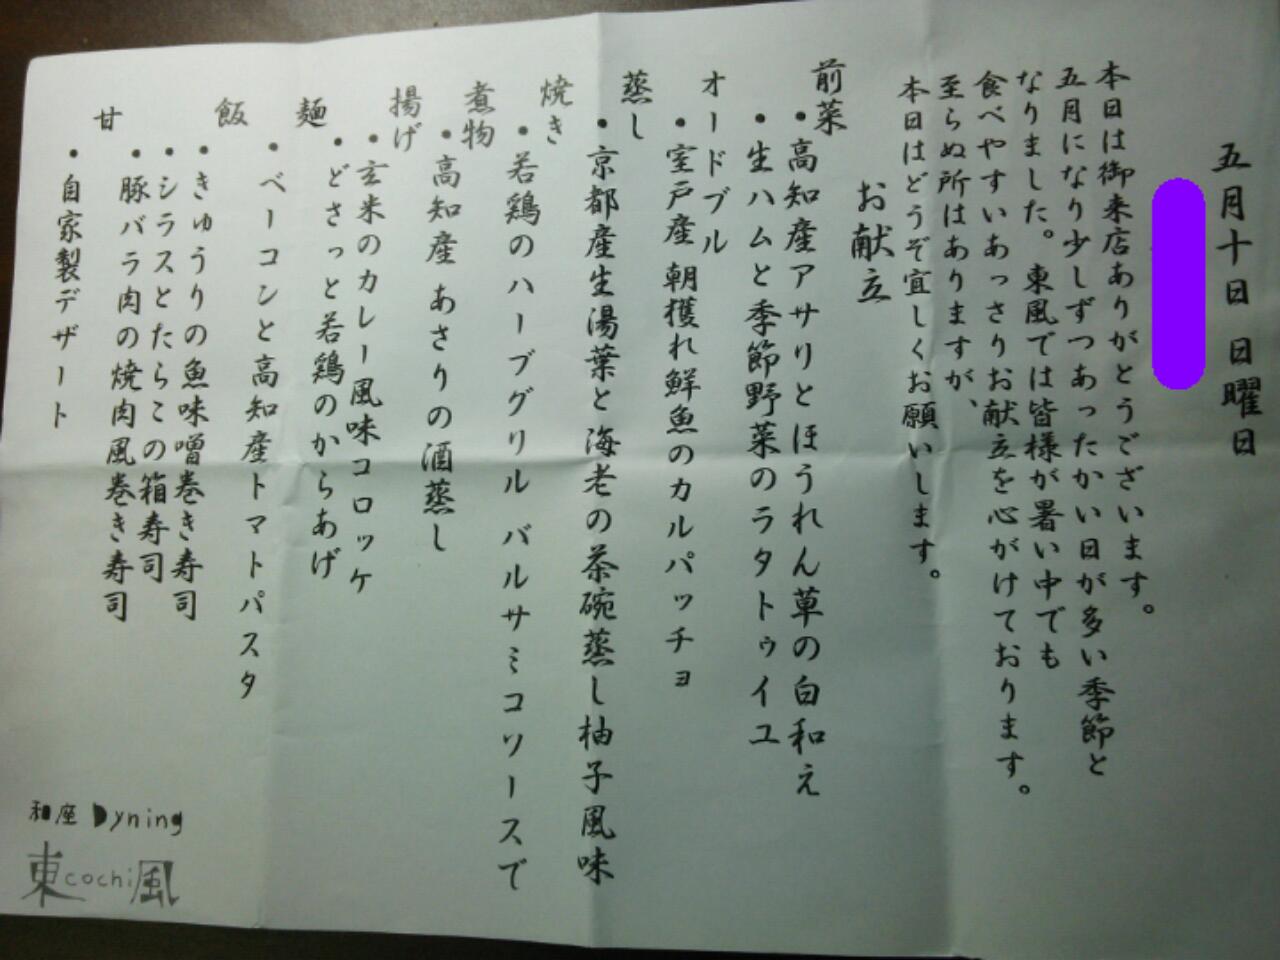 五月十日 日曜日
本日は御来店ありがとうございます。
五月になり少しずつあったかい日が多い季節と
なりました。東風では皆様が暑い中でも
食べやすいあっさりお献立を心がけております。
至らぬ所はありますが、
本日はどうぞ宜しくお願いします。
お献立
前菜
・高知産アサリとほうれん草の白和え
・生ハムと季節野菜のラタトゥイユ
オードブル
・室戸産 朝獲れ鮮魚のカルパッチョ
蒸し
・京都産生湯葉と海老の茶碗蒸し柚子風味
焼き
・若鶏のハーブグリル バルサミコソースで
煮物
・高知産 あさりの酒蒸し
揚げ
・玄米のカレー風味コロッケ
・どさっと若鶏のからあげ
麺
・ベーコンと高知産トマトパスタ
飯
・きゅうりの魚味噌巻き寿司
・シラスとたらこの箱寿司
・豚バラ肉の焼肉風巻き寿司
甘
・自家製デザート
和座 Dyning
東cochi風